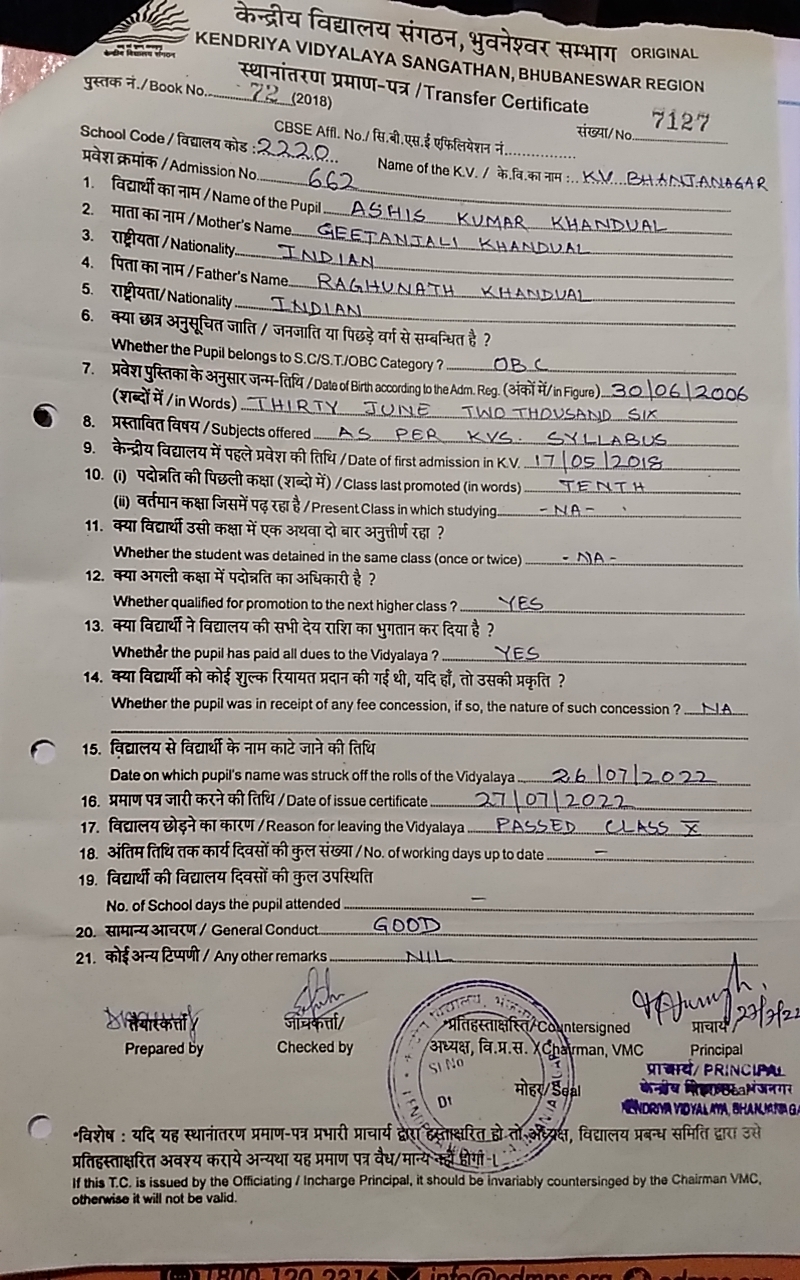 केन्द्रीय विद्यालय संगठन, भुवनेश्वर सम्भाग ORIGINAL
केन्द्रीय विद्यालय संगठन
KENDRIYA VIDYALAYA SANGATHAN, BHUBANESWAR REGION
स्थानांतरण प्रमाण-पत्र / Transfer Certificate
पुस्तक नं./Book No. 72 (2018)
संख्या/No. 7127
CBSE Affl. No./ सि.बी.एस.ई एफिलियेशन नं.
School Code / विद्यालय कोड : 2220
Name of the K.V. / के.वि.का नाम : K.V. BHANJANAGAR
प्रवेश क्रमांक / Admission No. 662
1. विद्यार्थी का नाम / Name of the Pupil ASHIS KUMAR KHANDUAL
2. माता का नाम / Mother's Name GEETANJALI KHANDUAL
3. राष्ट्रीयता / Nationality INDIAN
4. पिता का नाम / Father's Name RAGHUNATH KHANDUAL
5. राष्ट्रीयता/ Nationality INDIAN
6. क्या छात्र अनुसूचित जाति / जनजाति या पिछड़े वर्ग से सम्बन्धित है ?
Whether the Pupil belongs to S.C/S.T./OBC Category ? OBC
7. प्रवेश पुस्तिका के अनुसार जन्म-तिथि / Date of Birth according to the Adm. Reg. (अंकों में/in Figure) 30/06/2006
(शब्दों में / in Words) THIRTY JUNE TWO THOUSAND SIX
8. प्रस्तावित विषय / Subjects offered AS PER KVS. SYLLABUS
9. केन्द्रीय विद्यालय में पहले प्रवेश की तिथि / Date of first admission in K.V. 17/05/2018
10. (i) पदोन्नति की पिछली कक्षा (शब्दो में) / Class last promoted (in words) TENTH
(ii) वर्तमान कक्षा जिसमें पढ़ रहा है / Present Class in which studying -NA-
11. क्या विद्यार्थी उसी कक्षा में एक अथवा दो बार अनुत्तीर्ण रहा ?
Whether the student was detained in the same class (once or twice) -NA-
12. क्या अगली कक्षा में पदोन्नति का अधिकारी है ?
Whether qualified for promotion to the next higher class ? YES
13. क्या विद्यार्थी ने विद्यालय की सभी देय राशि का भुगतान कर दिया है ?
Whether the pupil has paid all dues to the Vidyalaya ? YES
14. क्या विद्यार्थी को कोई शुल्क रियायत प्रदान की गई थी, यदि हाँ, तो उसकी प्रकृति ?
Whether the pupil was in receipt of any fee concession, if so, the nature of such concession ? NA
15. विद्यालय से विद्यार्थी के नाम काटे जाने की तिथि
Date on which pupil's name was struck off the rolls of the Vidyalaya 26/07/2022
16. प्रमाण पत्र जारी करने की तिथि / Date of issue certificate 27/07/2022
17. विद्यालय छोड़ने का कारण / Reason for leaving the Vidyalaya PASSED CLASS X
18. अंतिम तिथि तक कार्य दिवसों की कुल संख्या / No. of working days up to date –
19. विद्यार्थी की विद्यालय दिवसों की कुल उपस्थिति
No. of School days the pupil attended –
20. सामान्य आचरण / General Conduct GOOD
21. कोई अन्य टिप्पणी / Any other remarks NIL
27/7/22
तैयारकर्त्ता/ जाँचकर्त्ता/ *प्रतिहस्ताक्षरित/Countersigned प्राचार्य/
Prepared by Checked by अध्यक्ष, वि.प्र.स. / Chairman, VMC Principal
Sl No
Dt
मोहर/Seal
प्राचार्य/ PRINCIPAL
केन्द्रीय विद्यालय भंजनगर
KENDRIYA VIDYALAYA, BHANJANAGA
*विशेष : यदि यह स्थानांतरण प्रमाण-पत्र प्रभारी प्राचार्य द्वारा हस्ताक्षरित हो तो अध्यक्ष, विद्यालय प्रबन्ध समिति द्वारा उसे
प्रतिहस्ताक्षरित अवश्य कराये अन्यथा यह प्रमाण पत्र वैध/मान्य नहीं होगा।
If this T.C. is issued by the Officiating / Incharge Principal, it should be invariably countersinged by the Chairman VMC,
otherwise it will not be valid.
1800-120-2316 info@odmps.org